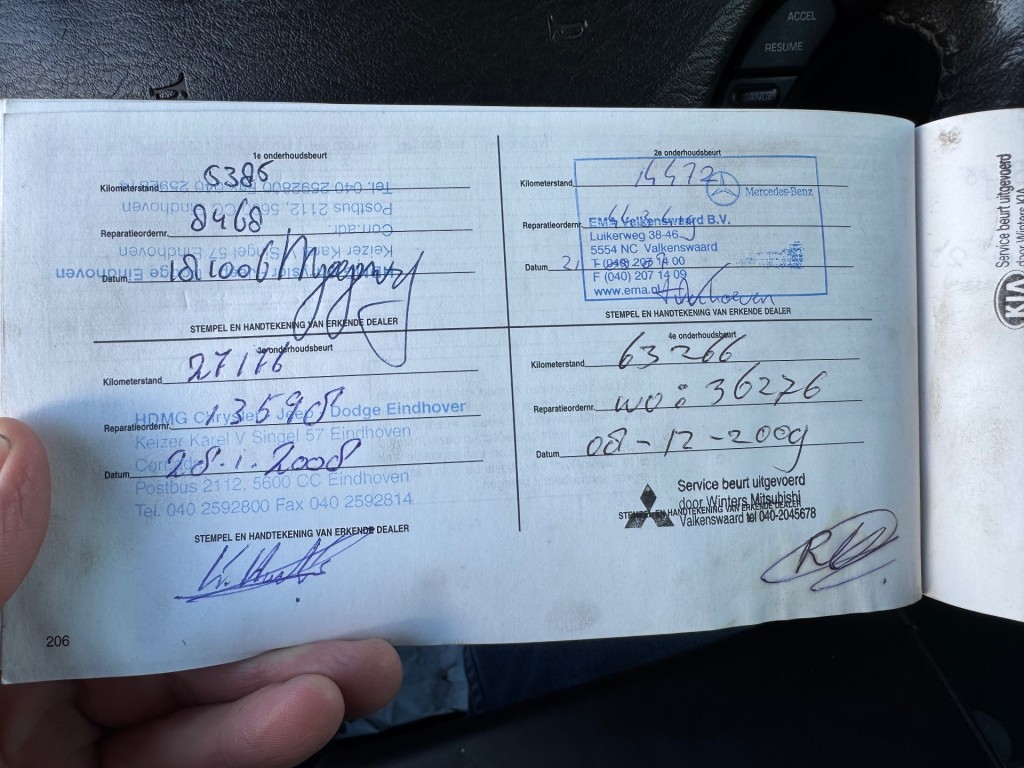 ACCEL
RESUME
1e onderhoudsbeurt
Kilometerstand 6386
Reparatieordernr. 8468
Datum
Tel. 040 2592800
Postbus 2112,
Corr.adr.
Keizer Karel V Singel 57 Eindhoven
Dodge Eindhoven
STEMPEL EN HANDTEKENING VAN ERKENDE DEALER
2e onderhoudsbeurt
Kilometerstand 14472
Mercedes-Benz
Reparatieordernr.
EMA Valkenswaard B.V.
Luikerweg 38-46
5554 NC Valkenswaard
Datum
T (040) 207 14 00
F (040) 207 14 09
www.ema.nl
STEMPEL EN HANDTEKENING VAN ERKENDE DEALER
3e onderhoudsbeurt
Kilometerstand 27176
Reparatieordernr. 135908
HDMG Chrysler Jeep Dodge Eindhoven
Keizer Karel V Singel 57 Eindhoven
Datum 28.1.2008
Postbus 2112, 5600 CC Eindhoven
Tel. 040 2592800 Fax 040 2592814
STEMPEL EN HANDTEKENING VAN ERKENDE DEALER
4e onderhoudsbeurt
Kilometerstand 63266
Reparatieordernr. wo: 36276
Datum 08-12-2009
Service beurt uitgevoerd
door Winters Mitsubishi
STEMPEL EN HANDTEKENING VAN ERKENDE DEALER
Valkenswaard tel 040-2045678
206
Service beurt uitgevoerd
door Winters KIA
KIA